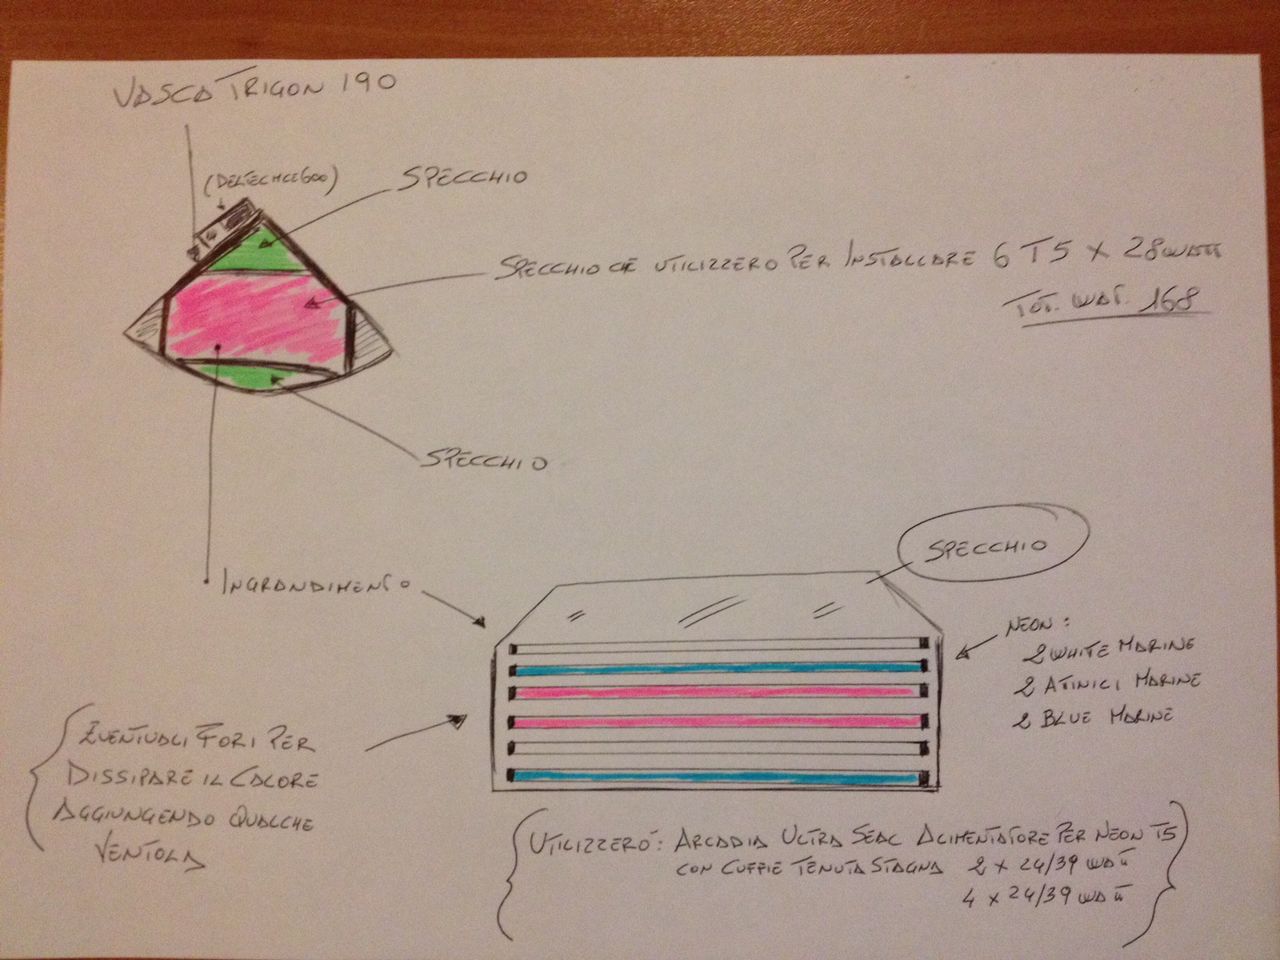 VASCA TRIGON 190
(DELTEC MCE600)
SPECCHIO
SPECCHIO CHE UTILIZZERO PER INSTALLARE 6 T5 X 28 WATT
TOT. WAT. 168
SPECCHIO
INGRANDIMENTO
SPECCHIO
NEON:
2 WHITE MARINE
2 ATINICI MARINE
2 BLUE MARINE
EVENTUALI FORI PER
DISSIPARE IL CALORE
AGGIUNGENDO QUALCHE
VENTOLA
UTILIZZERÓ: ARCADIA ULTRA SEAL ALIMENTATORE PER NEON T5
CON CUFFIE TENUTA STAGNA 2 X 24/39 WATT
4 X 24/39 WATT